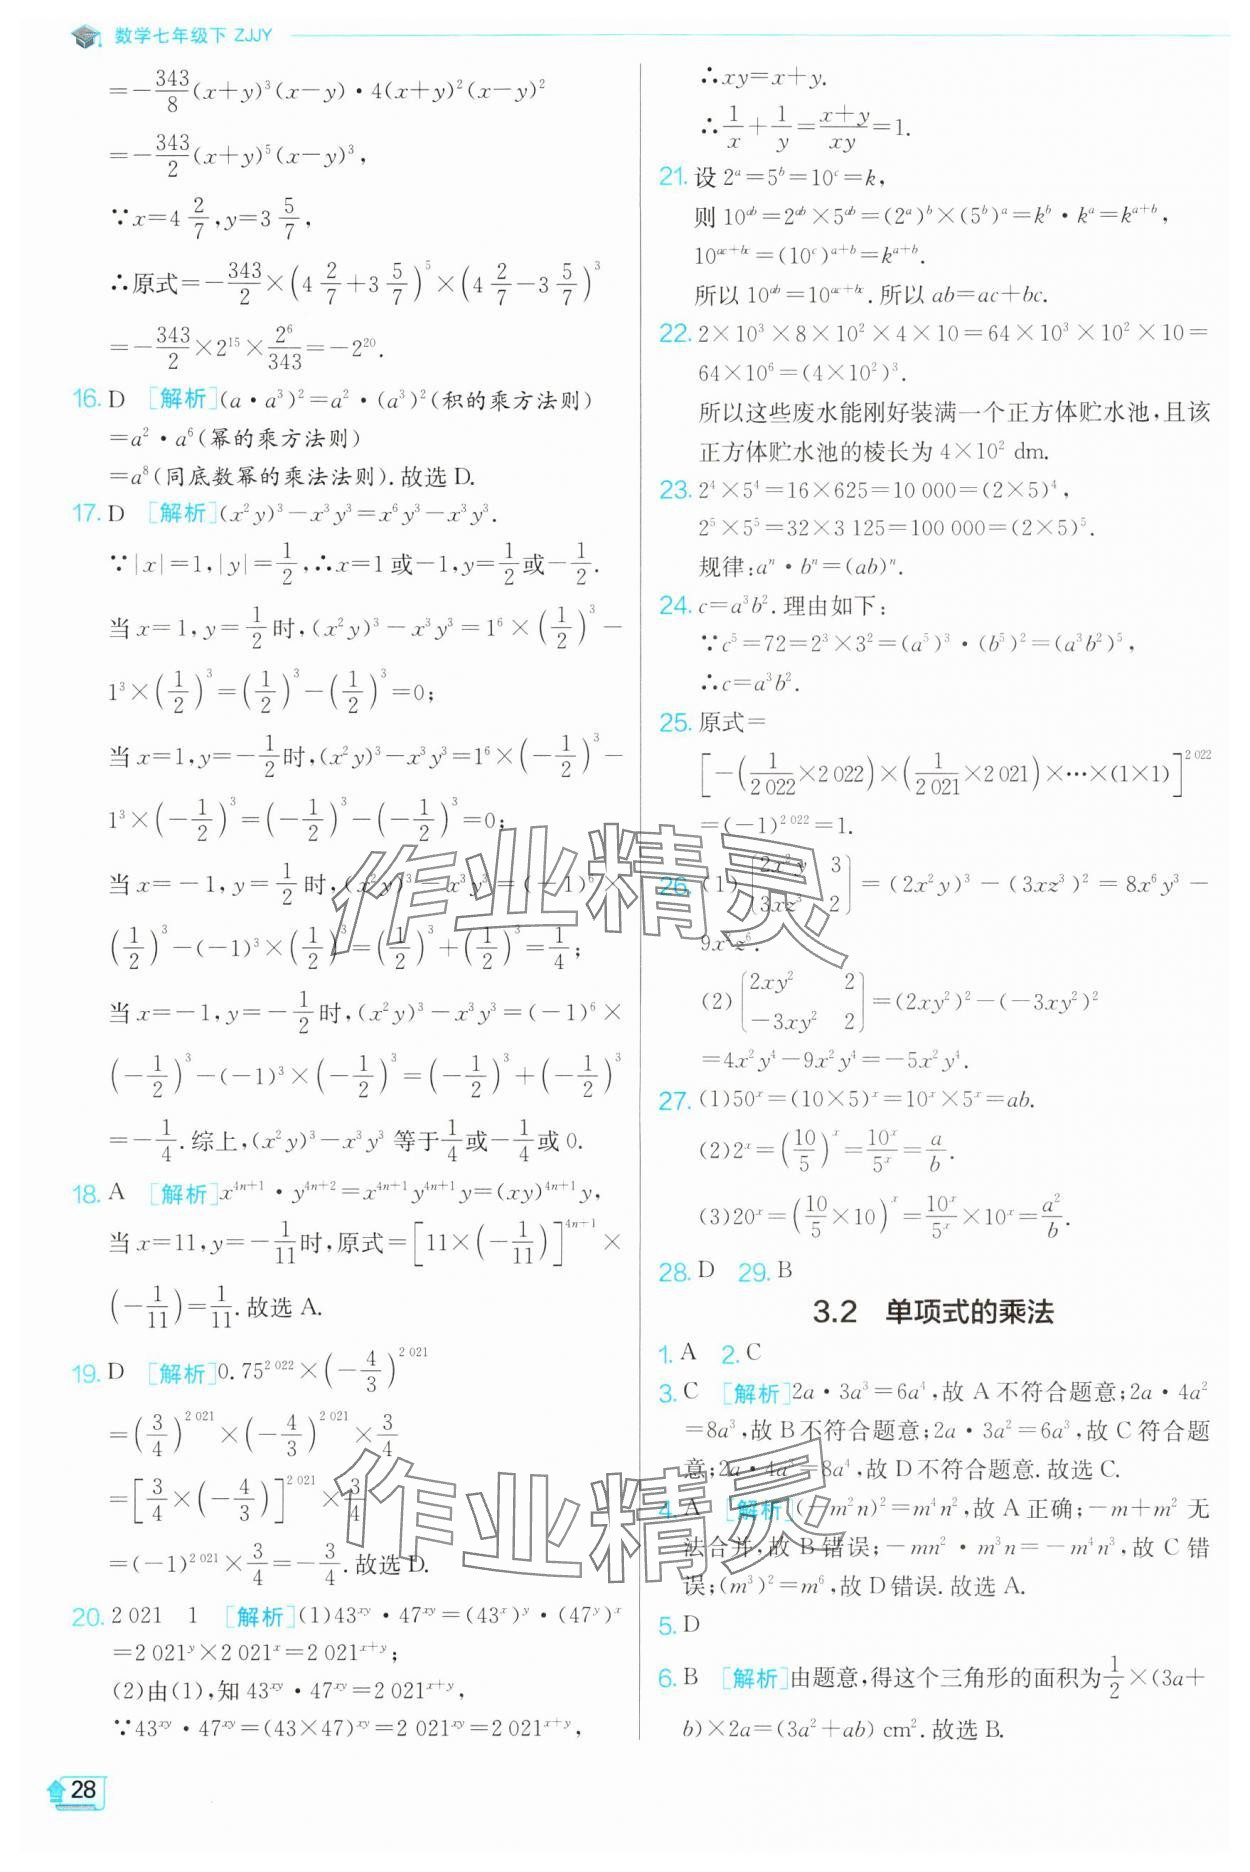 数学七年级下 ZJJY
=-343/8(x+y)³(x-y)·4(x+y)²(x-y)²
=-343/2(x+y)⁵(x-y)³,
∵x=4 2/7,y=3 5/7,
∴原式=-343/2×(4 2/7+3 5/7)⁵×(4 2/7-3 5/7)³
=-343/2×2¹⁵×2⁶/343=-2²⁰.
16. D [解析](a·a³)²=a²·(a³)²(积的乘方法则)
=a²·a⁶(幂的乘方法则)
=a⁸(同底数幂的乘法法则).故选 D.
17. D [解析](x²y)³-x³y³=x⁶y³-x³y³.
∵|x|=1,|y|=1/2,∴x=1 或-1,y=1/2或-1/2.
当 x=1,y=1/2时,(x²y)³-x³y³=1⁶×(1/2)³-
1³×(1/2)³=(1/2)³-(1/2)³=0;
当 x=1,y=-1/2时,(x²y)³-x³y³=1⁶×(-1/2)³-
1³×(-1/2)³=(-1/2)³-(-1/2)³=0;
当 x=-1,y=1/2时,(x²y)³-x³y³=(-1)⁶×
(1/2)³-(-1)³×(1/2)³=(1/2)³+(1/2)³=1/4;
当 x=-1,y=-1/2时,(x²y)³-x³y³=(-1)⁶×
(-1/2)³-(-1)³×(-1/2)³=(-1/2)³+(-1/2)³
=-1/4.综上,(x²y)³-x³y³ 等于1/4或-1/4或 0.
18. A [解析]x⁴ⁿ⁺¹·y⁴ⁿ⁺²=x⁴ⁿ⁺¹y⁴ⁿ⁺¹y=(xy)⁴ⁿ⁺¹y,
当 x=11,y=-1/11时,原式=[11×(-1/11)]⁴ⁿ⁺¹×
(-1/11)=1/11.故选 A.
19. D [解析]0.75^(2 022)×(-4/3)^(2 021)
=(3/4)^(2 021)×(-4/3)^(2 021)×3/4
=[3/4×(-4/3)]^(2 021)×3/4
=(-1)^(2 021)×3/4=-3/4.故选 D.
20. 2 021 1 [解析](1)43^(xy)·47^(xy)=(43^x)^y·(47^y)^x
=2 021^y×2 021^x=2 021^(x+y);
(2)由(1),知 43^(xy)·47^(xy)=2 021^(x+y),
∵43^(xy)·47^(xy)=(43×47)^(xy)=2 021^(xy)=2 021^(x+y),
28
∴xy=x+y.
∴1/x+1/y=(x+y)/xy=1.
21. 设 2^a=5^b=10^c=k,
则 10^(ab)=2^(ab)×5^(ab)=(2^a)^b×(5^b)^a=k^b·k^a=k^(a+b),
10^(ac+bc)=(10^c)^(a+b)=k^(a+b).
所以 10^(ab)=10^(ac+bc).所以 ab=ac+bc.
22. 2×10³×8×10²×4×10=64×10³×10²×10=
64×10⁶=(4×10²)³.
所以这些废水能刚好装满一个正方体贮水池,且该
正方体贮水池的棱长为 4×10² dm.
23. 2⁴×5⁴=16×625=10 000=(2×5)⁴,
2⁵×5⁵=32×3 125=100 000=(2×5)⁵.
规律:aⁿ·bⁿ=(ab)ⁿ.
24. c=a³b².理由如下:
∵c⁵=72=2³×3²=(a⁵)³·(b⁵)²=(a³b²)⁵,
∴c=a³b².
25. 原式=
[-(1/2 022×2 022)×(1/2 021×2 021)×…×(1×1)]^(2 022)
=(-1)^(2 022)=1.
26. (1)|2x²y 3 3xz³ 2|=(2x²y)³-(3xz³)²=8x⁶y³-
9x²z⁶.
(2)|2xy² 2 -3xy² 2|=(2xy²)²-(-3xy²)²
=4x²y⁴-9x²y⁴=-5x²y⁴.
27. (1)50^x=(10×5)^x=10^x×5^x=ab.
(2)2^x=(10/5)^x=10^x/5^x=a/b.
(3)20^x=(10/5×10)^x=10^x/5^x×10^x=a²/b.
28. D 29. B
3.2 单项式的乘法
1. A 2. C
3. C [解析]2a·3a³=6a⁴,故 A 不符合题意;2a·4a²
=8a³,故 B 不符合题意;2a·3a²=6a³,故 C 符合题
意;2a·4a³=8a⁴,故 D 不符合题意.故选 C.
4. A [解析](-m²n)²=m⁴n²,故 A 正确;-m+m² 无
法合并,故 B 错误;-mn²·m³n=-m⁴n³,故 C 错
误;(m³)²=m⁶,故 D 错误.故选 A.
5. D
6. B [解析]由题意,得这个三角形的面积为1/2×(3a+
b)×2a=(3a²+ab) cm².故选 B.
作业精灵
作业精灵